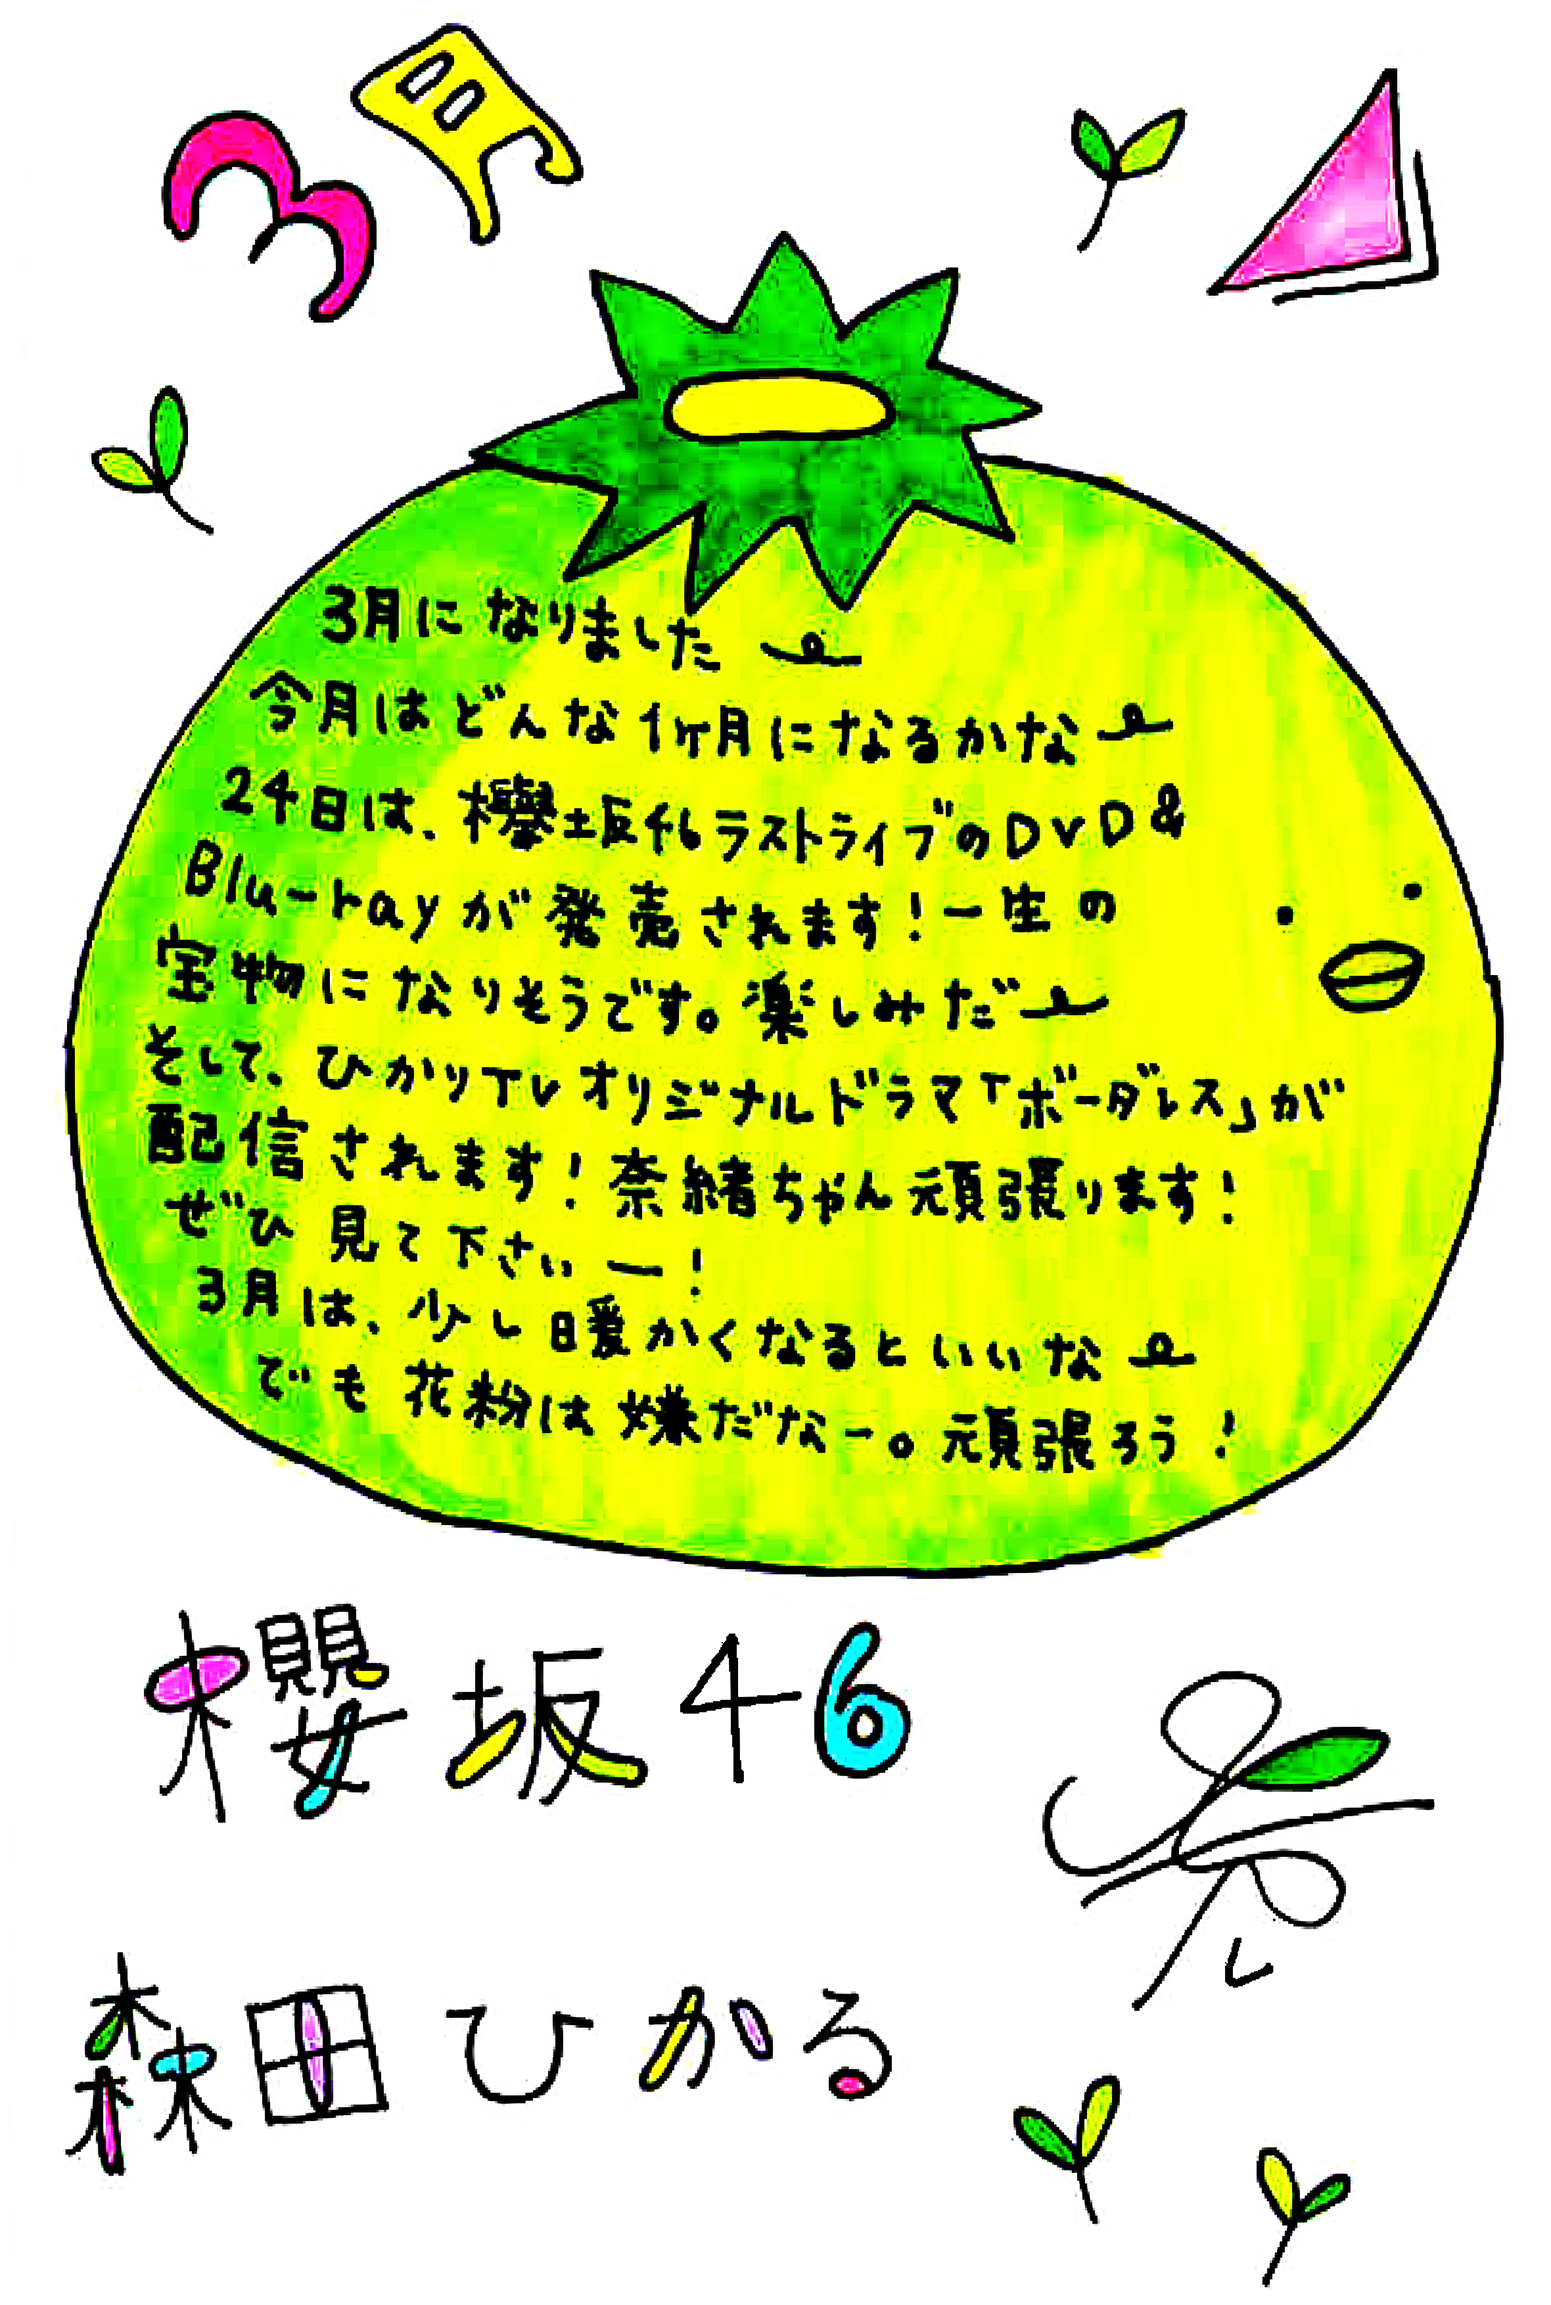 3月
3月になりました
今月はどんな1ヶ月になるかな
24日は、欅坂46ラストライブのDVD&
Blu-rayが発売されます！一生の
宝物になりそうです。楽しみだ
そして、ひかりTVオリジナルドラマ「ボーダレス」が
配信されます！奈緒ちゃん頑張ります！
ぜひ見て下さいー！
3月は、少し暖かくなるといいな
でも花粉は嫌だなー。頑張ろう！
櫻坂46
森田ひかる